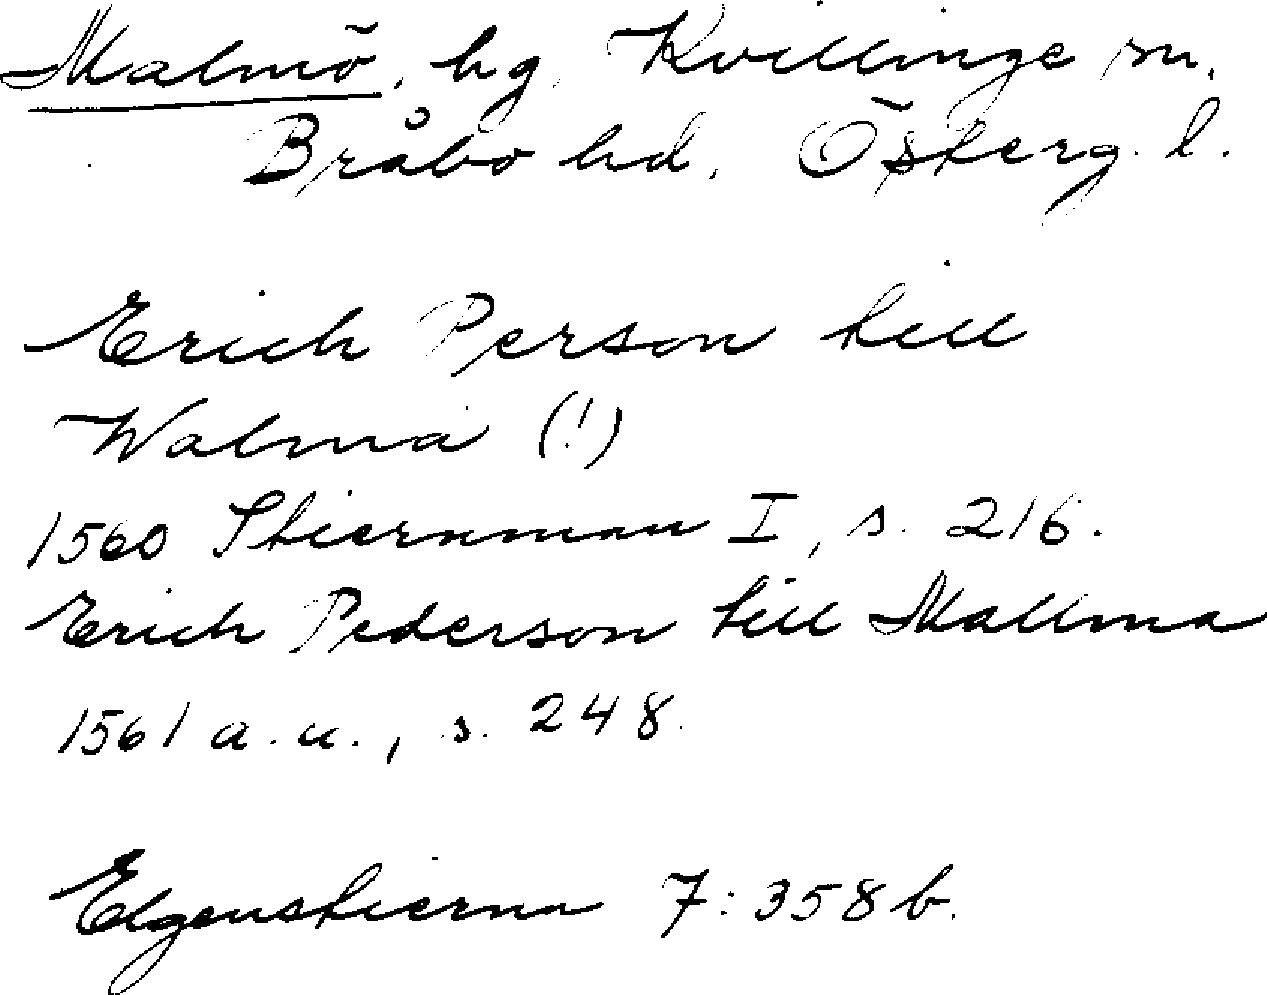 Malmö, hg, Kvillinge sn,
Bråbo hd, Österg. l.
Erich Person till
Walma (!)
1560 Stiernman I, s. 216.
Erich Pederson till Mallma
1561 a.u., s. 248.
Elgenstierna 7:358 b.